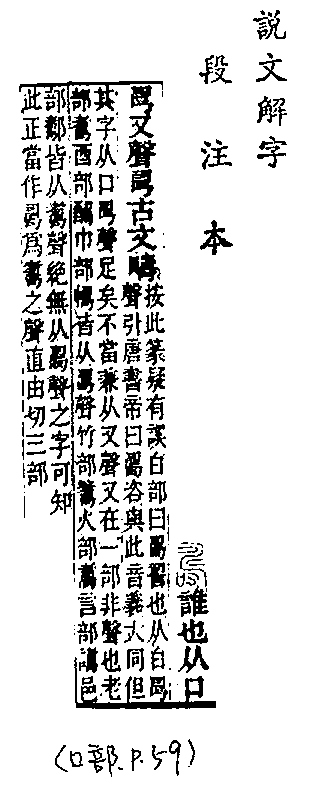 說文解字
段注本
誰也从口
又聲古文疇
按此篆疑有誤白部曰䛐也从白
聲引唐書帝曰咨與此音義大同但
其字从口聲足矣不當兼从又聲又在一部非聲也老
部酉部醻巾部幬皆从聲竹部籌火部燾言部譸邑
部皆从壽聲絕無从聲之字可知
此正當作爲壽之聲直由切三部
(口部.P.59)